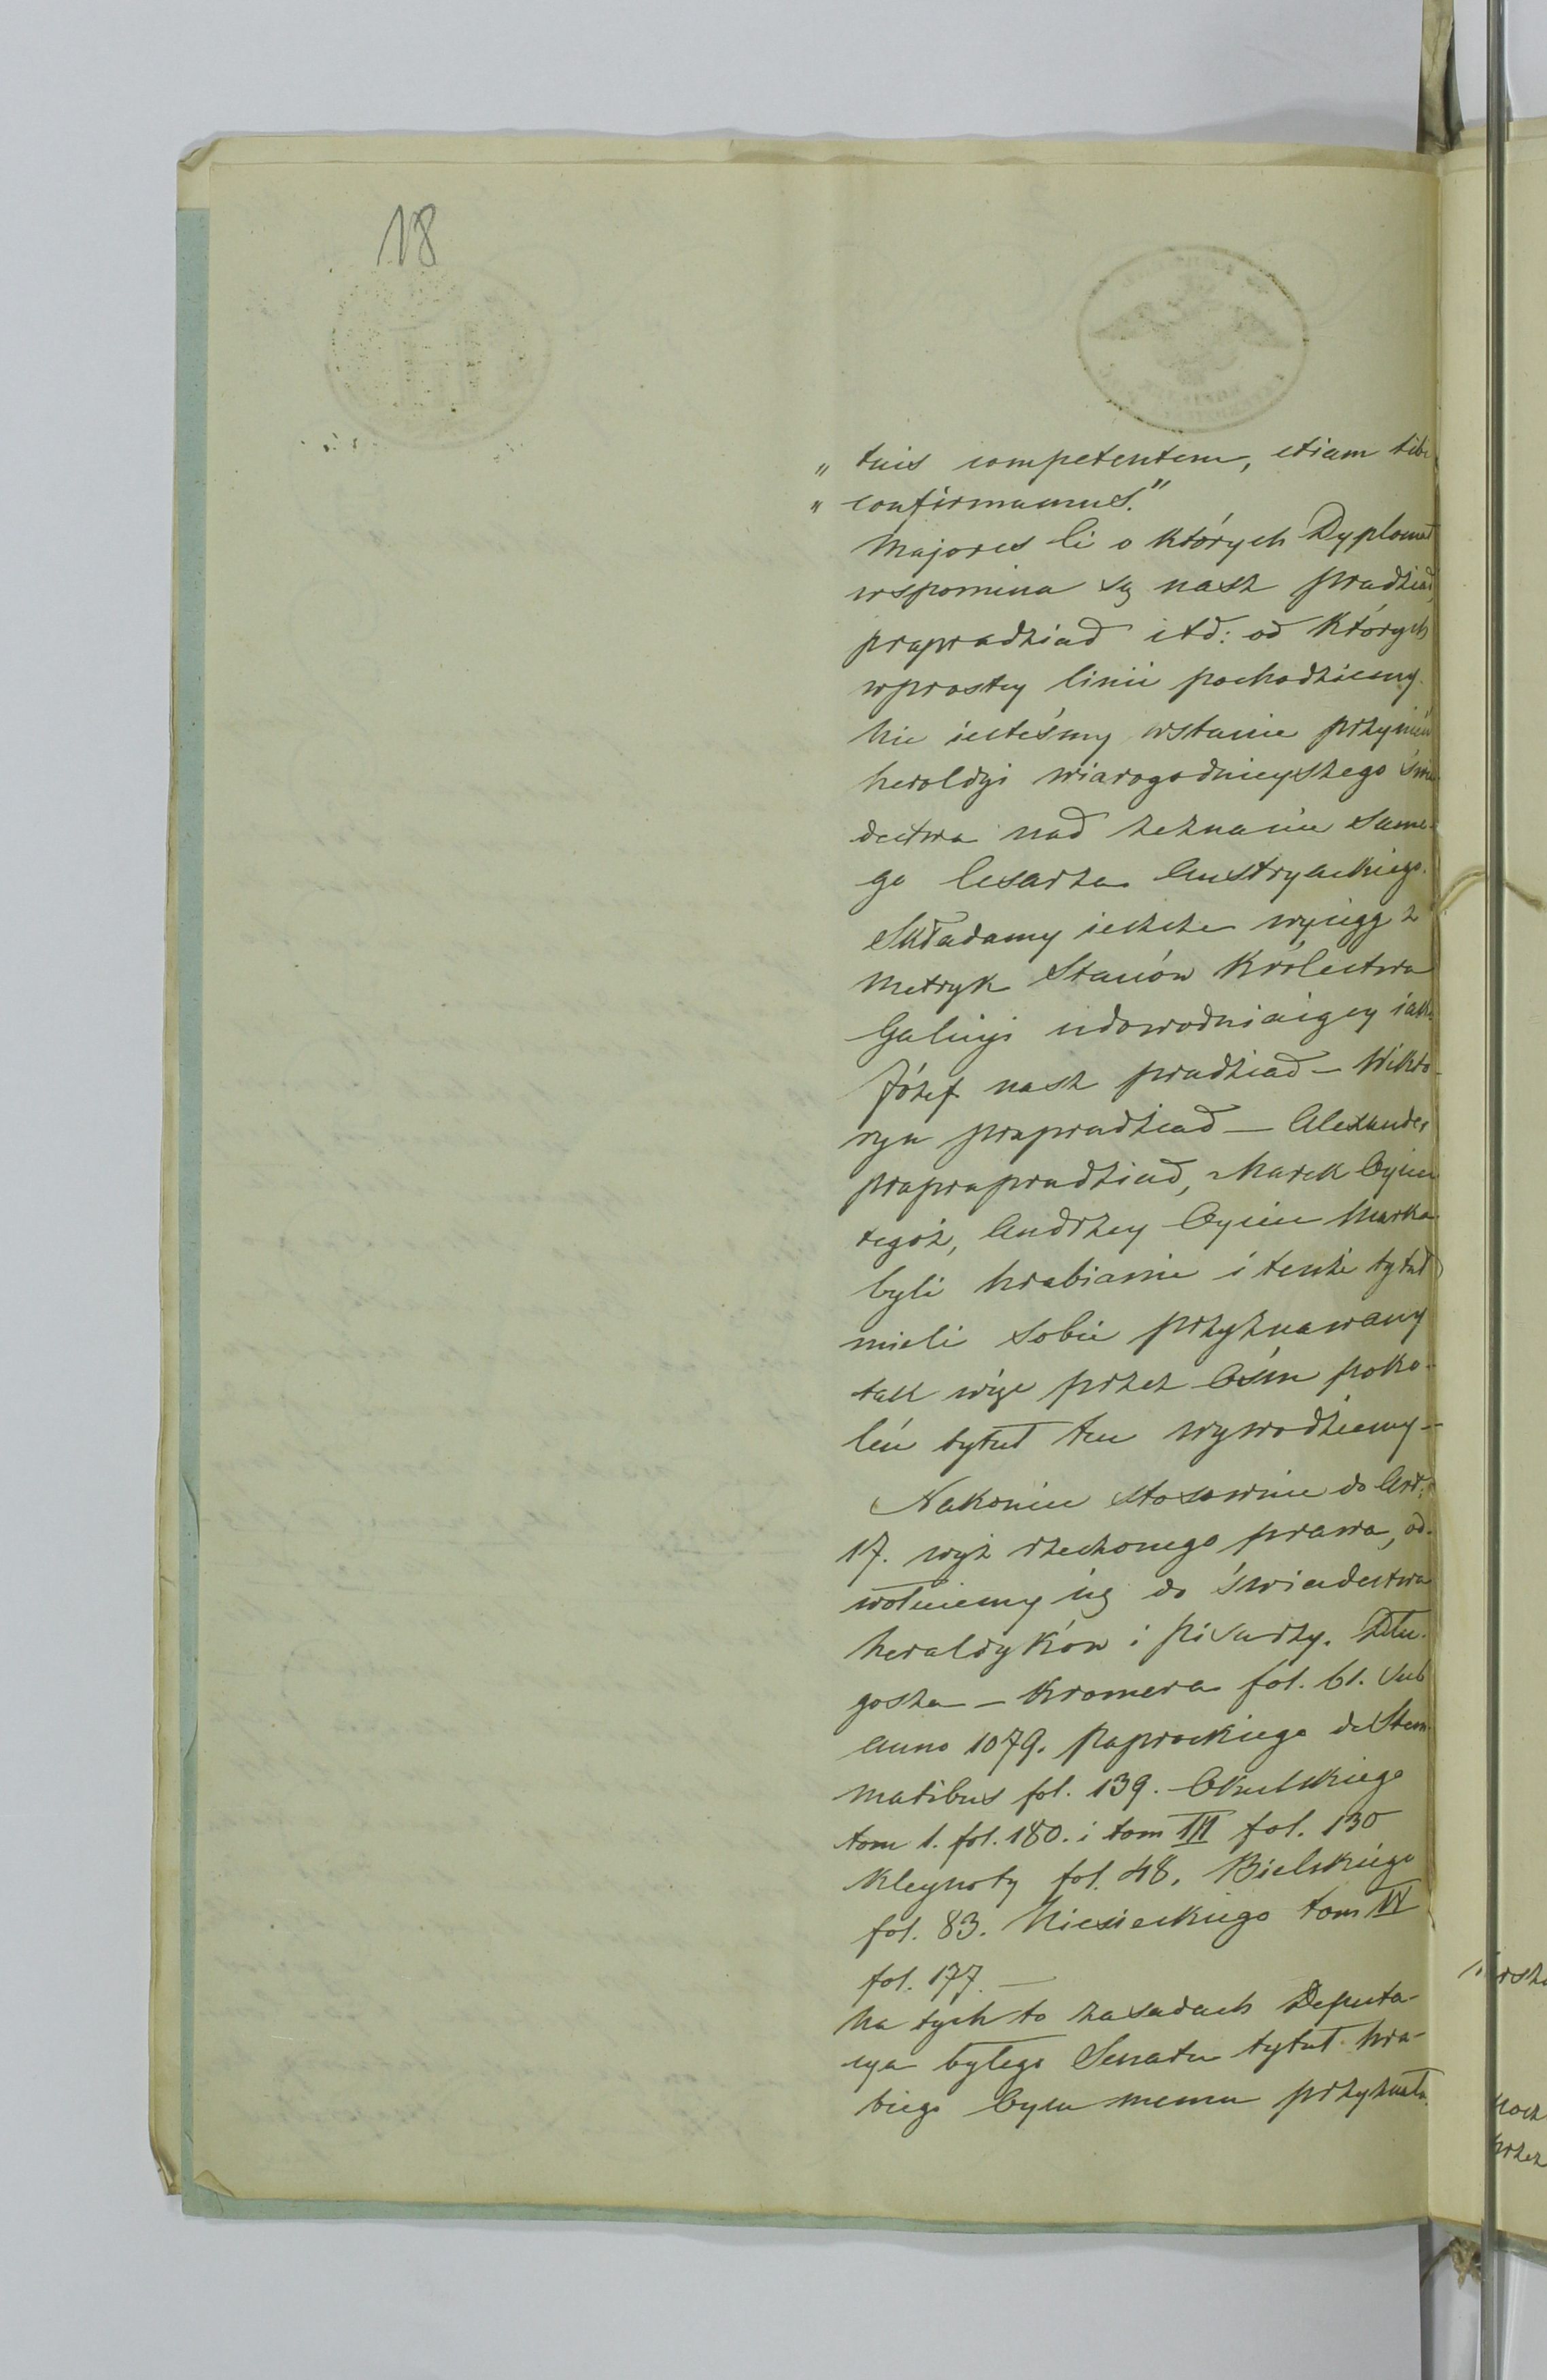 18
„ tuis competentem, etiam tibi
„ confirmamus."
Majores Ci o których Dyplomat
wspomina są nasz pradziad,
prapradziad itd: od których
wprostey linii pochodziemy.
Nie iesteśmy wstanie przynieść
heroldyi wiarogodnieyszego świa
dectwa nad zeznanie same-
go Cesarza Austryackiego.
Składamy ieszcze wyciąg z
Metryk Stanów Królestwa
Galicyi udowodniaiący iako
Józef nasz pradziad – Wikto-
ryn prapradziad – Alexander
praprapradziad, Marek Oyciec
tegoż, Andrzey Oyciec Marka
byli hrabiami i tenże tytuł
mieli sobie przyznawany
tak więc przez Ośm poko-
leń tytuł ten wywodziemy –
Nakoniec stosownie do Art:
17. wyż rzeczonego prawa, od-
wołuiemy się do świadectwa
heraldyków i pisarzy. Dłu-
gosza – Kromera fol. 61. sub
anno 1079. Paprockiego de Stem-
matibus fol. 139. Okulskiego
tom 1. fol. 180. i tom III fol. 130
Kleynoty fol. 48. Bielskiego
fol. 83. Niesieckiego tom IV
fol. 177. –
Na tych to zasadach Deputa-
cya byłego Senatu tytuł hra-
biego Oycu memu przyznała.